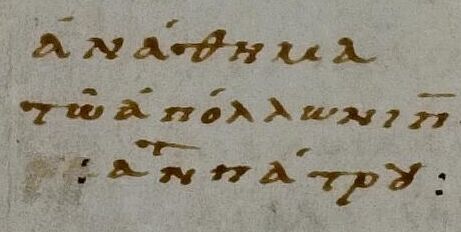 ἀνάθημα
τῶ ἀπόλλωνι π̅
: ἀν̅τπάτρȣ :